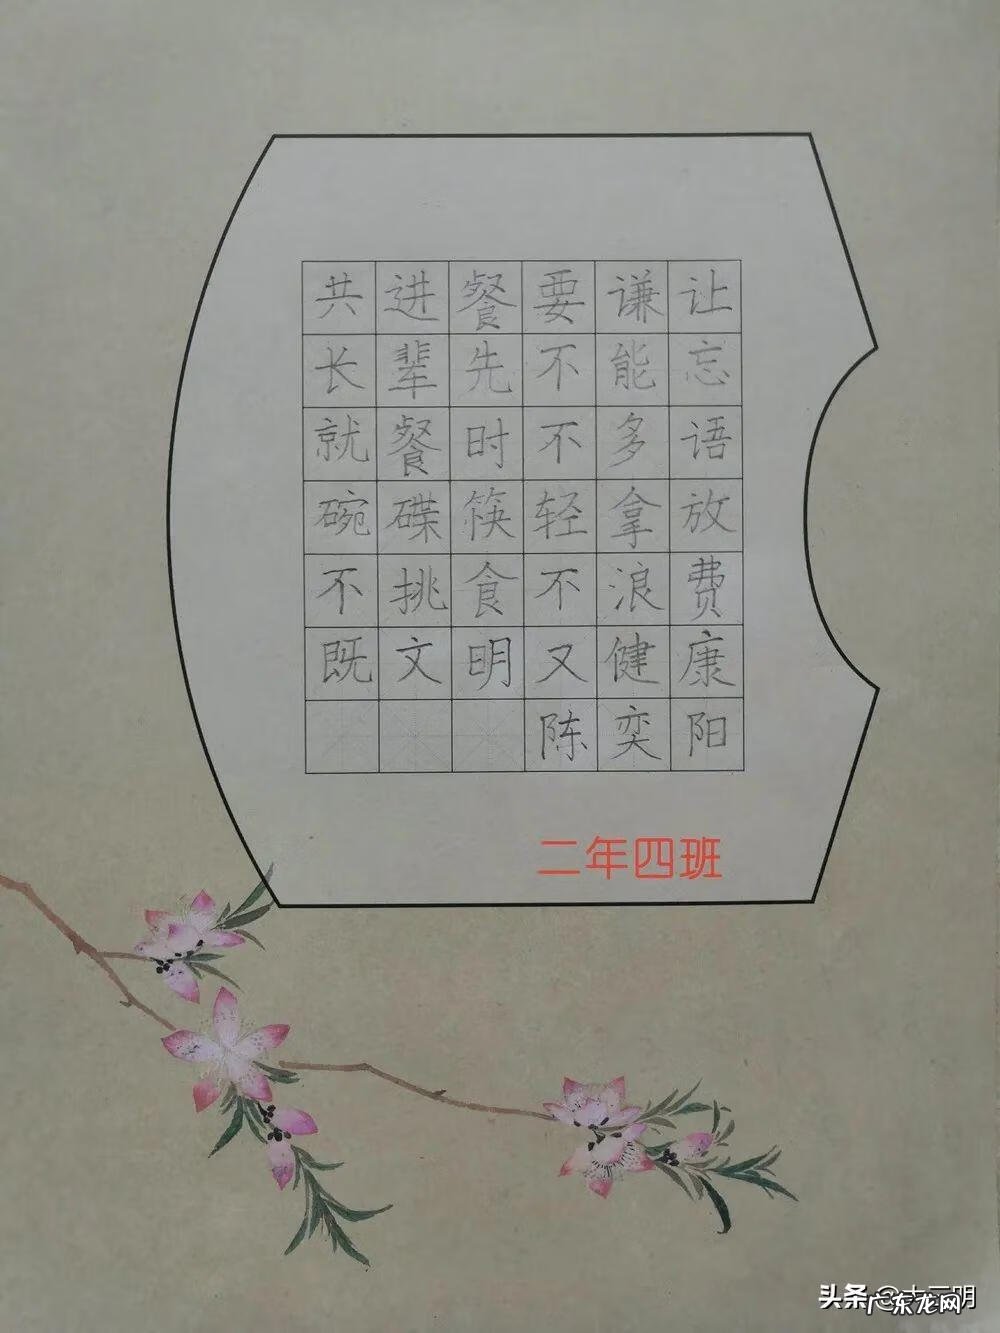 共进餐要谦让
长辈先不能忘
就餐时不多语
碗碟筷轻拿放
不挑食不浪费
既文明又健康
陈奕阳
二年四班
头条
广东龙网